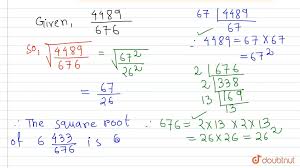 Given, 4489/676
So, √(4489/676) = √(67²/26²)
= 67/26
∴ The square root
of 6 433/676 is 6
67 | 4489
67
∴ 4489 = 67 × 67
= 67²
2 | 676
2 | 338
13 | 169
13
∴ 676 = 2×13 × 2×13
= 26×26 = 26²
doubtnut